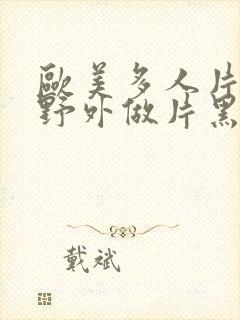 歐美多人片
野外做片黑
戴斌